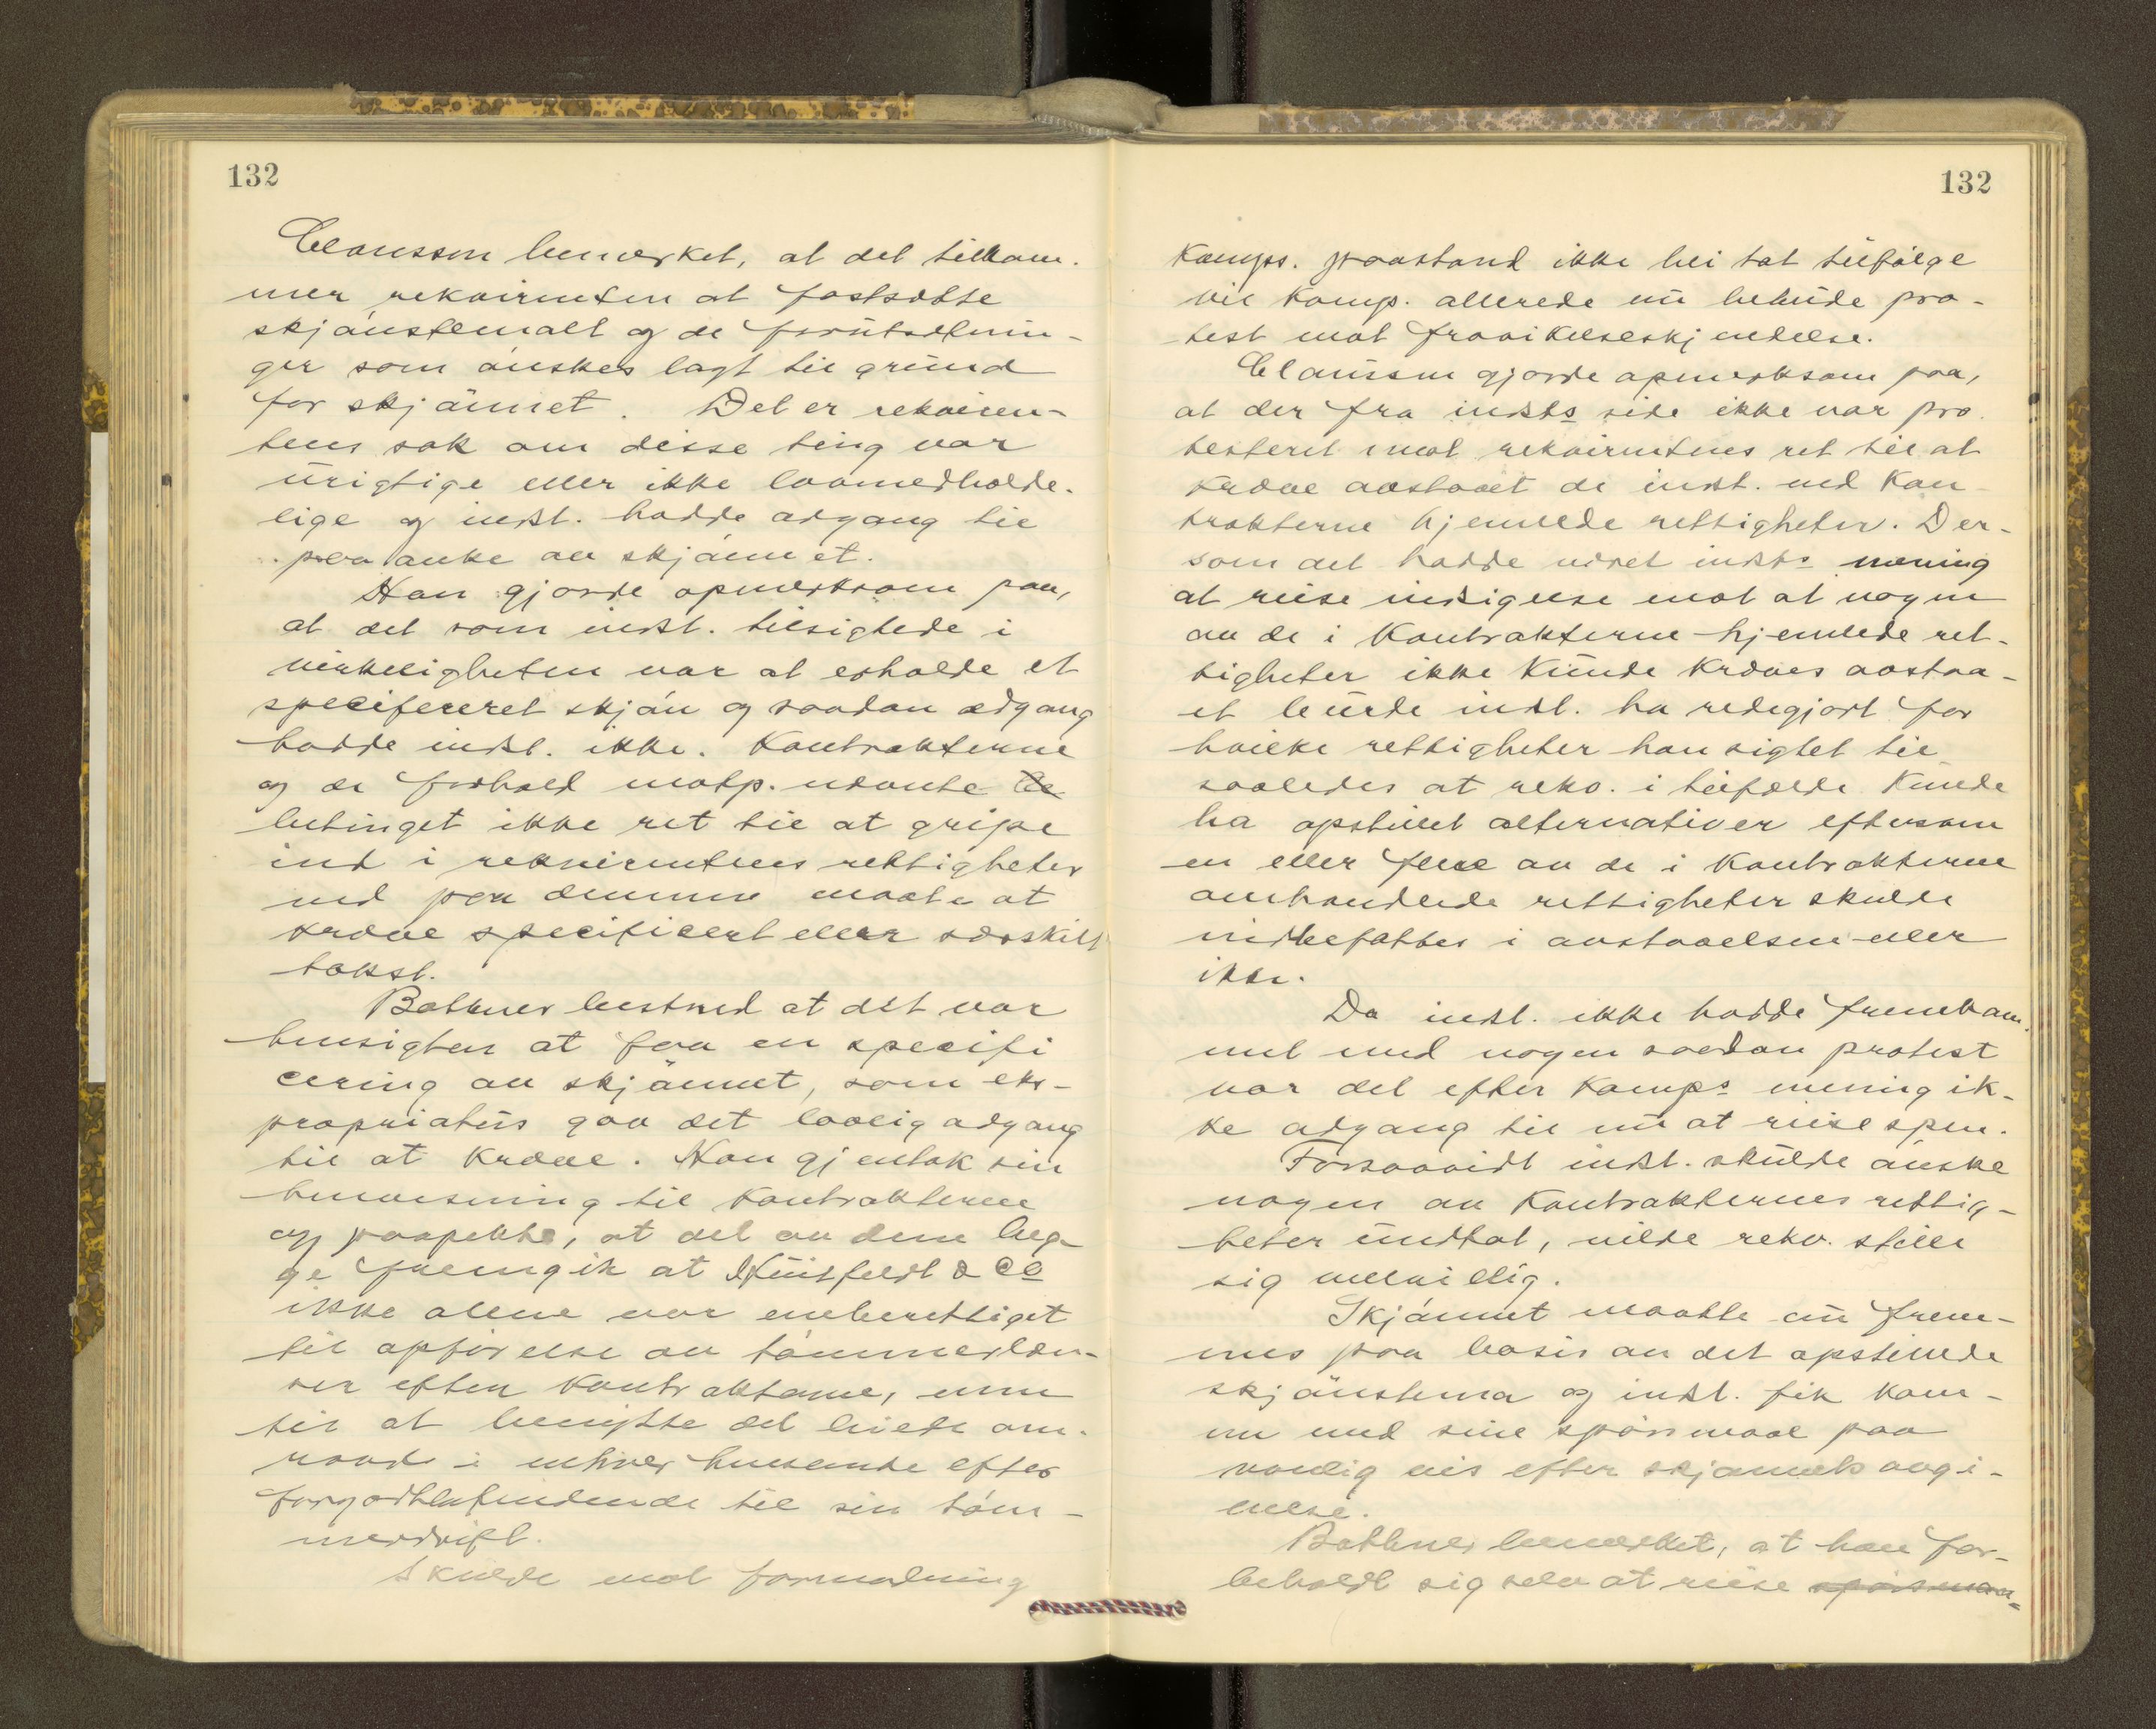 132
Claussøn bemerket, at det tilkom-
mer rekvirenten at fastsætte
skjønstemaet og de forutsætnin-
ger som ønskes lagt til grund
for skjønnet. Det er rekviren-
tens sak om disse ting var
urigtige eller ikke lovmedholde-
lige og indst. hadde adgang til
paaanke av skjønnet.
Han gjorde opmerksom paa,
at det som indst. tilsigtede i
virkeligheten var at erholde et
specificeret skjøn og saadan adgang
hadde indst. ikke. Kontrakterne
og de forhold motp. nævnte
betinget ikke ret til at gripe
ind i rekvirentens rettigheter
ved paa denne maate at
kræve specificert eller særskilt
takst.
Bothner bestred at det var
hensigten at faa en specifi
cering av skjønnet, som eks-
propriatus gav det lovlig adgang
til at kræve. Han gjentok sin
henvisning til kontrakterne
og paapekte, at det av dem beg-
ge fremgik at & Co
ikke alene var eneberettiget
til opførelse av tømmerlæn-
ser efter kontrakterne, men
til at benytte det leiede om-
raade i enhver henseende efter
forgodtbefindende til sin tøm-
merdrift.
Skulde mot formodning
132
Komps. paastand ikke bli tat tilfølge
vil Komp. allerede nu bebude pro-
test mot fravikelseskjendelse.
Claussøn gjorde opmerksom paa,
at der fra indsts side ikke var pro
testeret imot rekvirentens ret til at
kræve avstaaet de indst. ved kon-
trakterne hjemlede rettigheter. Der-
som det hadde været indsts mening
at reise indsigelse mot at nogen
av de i kontrakterne hjemlede ret-
tigheter ikke kunde kræves avstaa-
et burde indst. ha redegjort for
hvilke rettigheter han sigtet til
saaledes at rekv. i tilfælde kunde
ha opstillet alternativer eftersom
en eller flere av de i kontrakterne
omhandlede rettigheter skulde
indbefattes i avstaaelsen eller
ikke.
Da indst. ikke hadde fremkom-
met med nogen saadan protest
var det efter Komps mening ik-
ke adgang til nu at reise spm.
Forsaavidt indst. skulde ønske
nogen av kontrakternes rettig-
heter undtat, vilde rekv. stille
sig velvillig.
Skjønnet maatte nu frem-
mes paa basis av det opstillede
skjønstema og indst. fik kom-
me med sine spørsmaal paa
vanlig vis efter skjønnets avgi-
velse.
Bothner bemerket, at han for-
beholdt sig selv at reise spørsmaa-